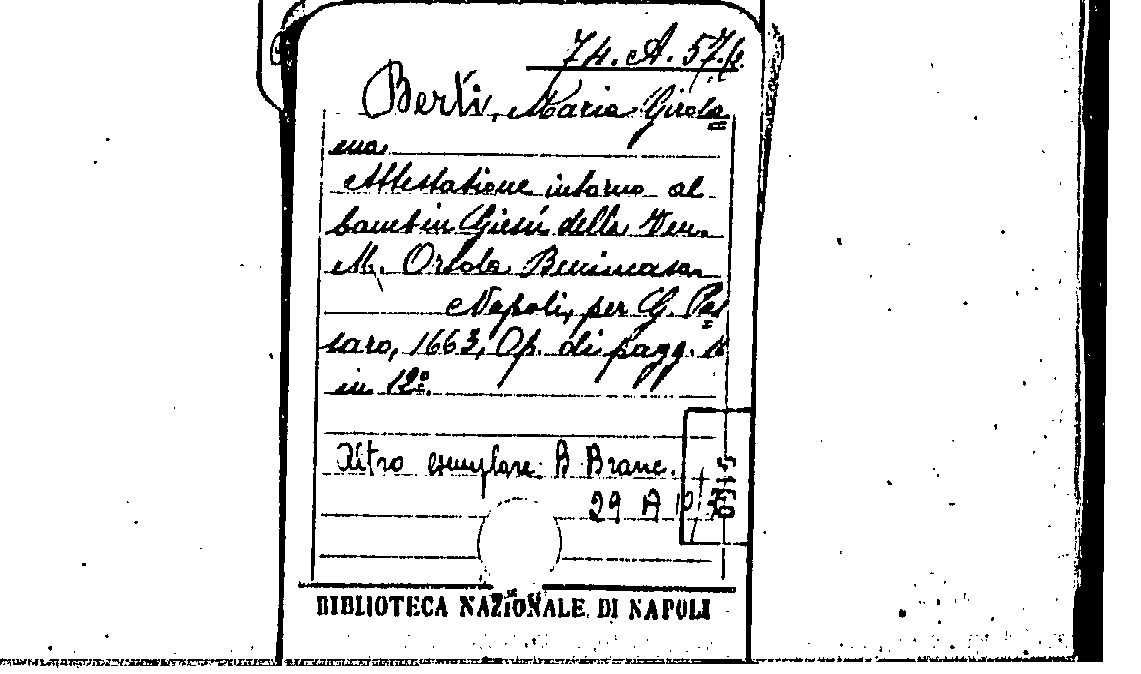 74. A. 57.
Berti, Maria Girola
ma
Attestatione intorno al
bambin Giesù della Ven.
M. Orsola Benincasa
Napoli, per G. Pas
saro, 1663, Op. di pagg. 16
in 12º.
Altro esemplare B Branc.
29 A
BIBLIOTECA NAZIONALE DI NAPOLI